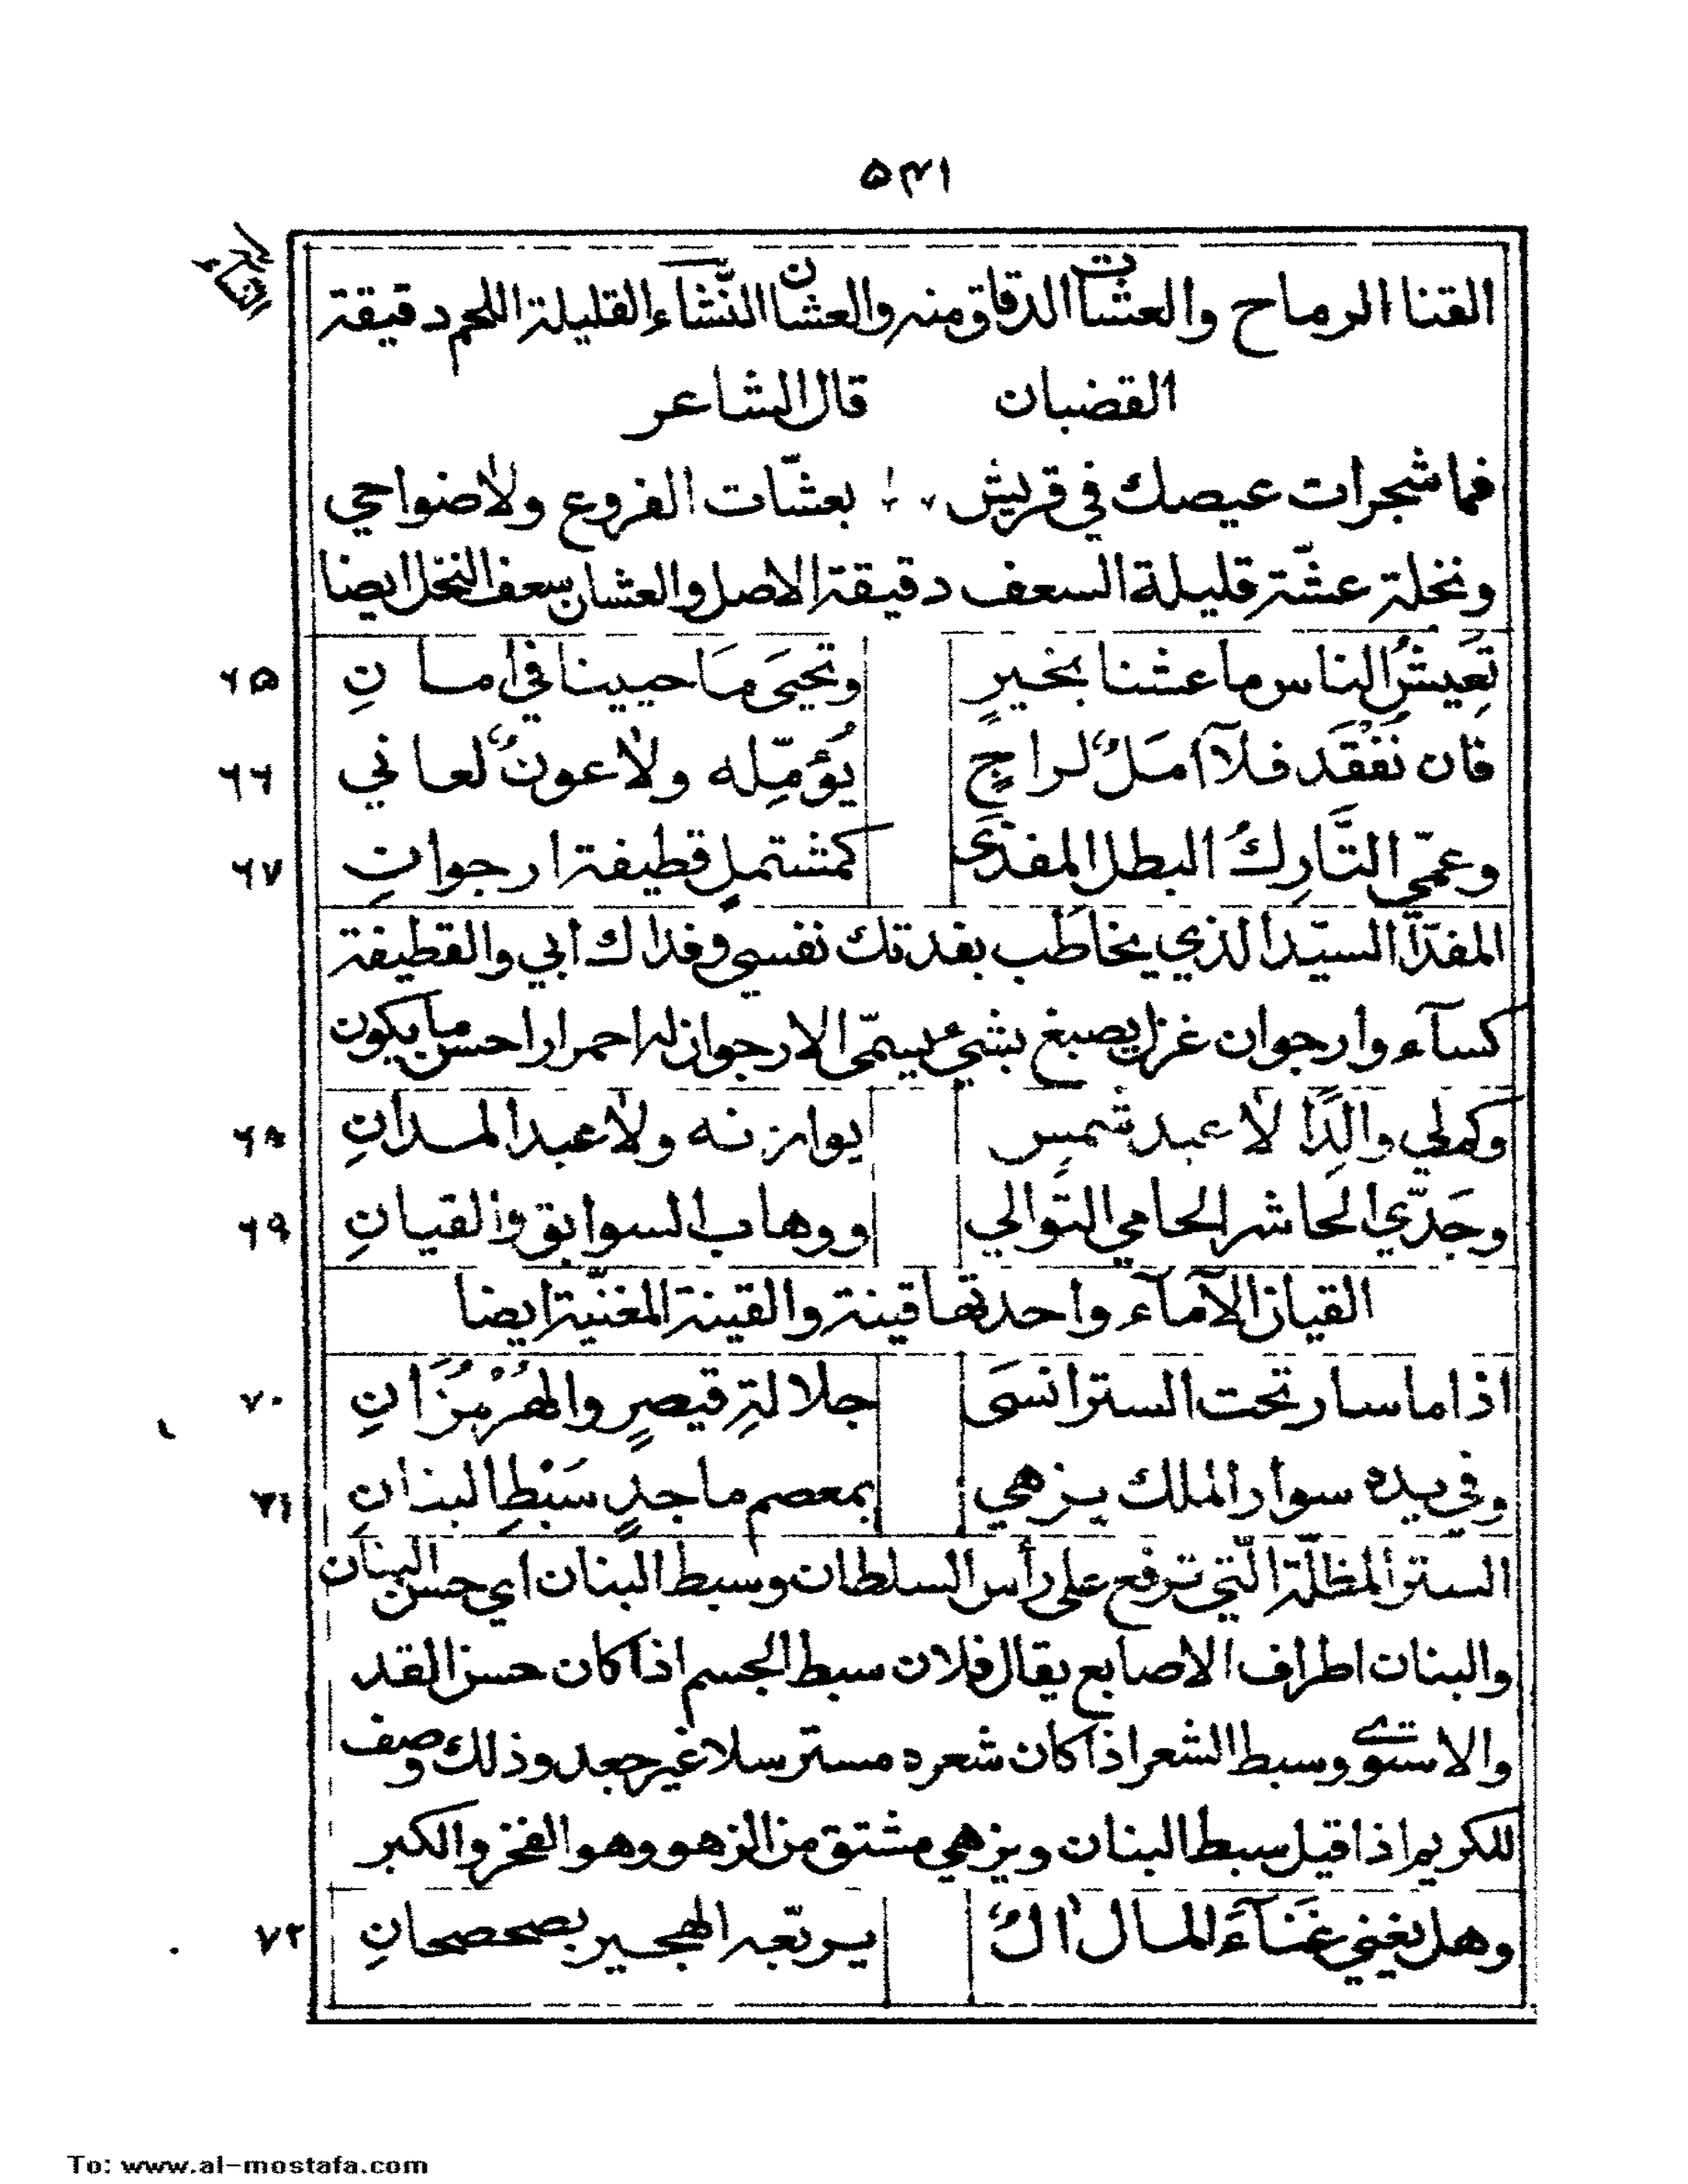 ٥٤١
القنا الرماح والعشات الدقاق منه والعشان النشاء القليلة اللحم دقيقة
القضبان قال الشاعر
فما شجرات عيصك في قريش بعشّات الفروع ولا ضواحي
ونخلة عشّة قليلة السعف دقيقة الاصل والعشان سعف النخل ايضا
تَعِيشُ الناس ما عشنا بخيرٍ وتحيَى مَا حيينا في امانِ ٦٥
فان نُفْقَد فلآ امَلٌ لراجٍ يُؤمِّله ولا عونٌ لعاني ٦٦
وعمّي التَّارِكُ البطل المفدَّى كمشتملٍ قطيفة ارجوانِ ٦٧
المفدّا السيّد الذي يخاطَب بفدتك نفسي وفداك ابي والقطيفة
كسآء وارجوان غزل يصبغ بشيء يسمّى الارجوان له احمرار احسن ما يكون
وكملي والِدًا لا عبد شمسٍ يوازنه ولا عبد المدانِ ٦٨
وجَدّي الحاشر الحامي التوالي ووهاب السوابق والقيانِ ٦٩
القيان الآمآء واحدتها قينة والقينة المغنّية ايضا
اذا ما سار تحت الستر انسَى جلالةِ قيصرٍ والهُرْمُزَانِ ٧٠
وفي يده سوار الملك يزهي بمعصم ماجدٍ سَبْطِ البنانِ ٧١
الستر المظلّة الّتي ترفع على رأس السلطان وسبط البنان اي حسن البنان
والبنان اطراف الاصابع يقال فلان سبط الجسم اذا كان حسن القد
والاستوى وسبط الشعر اذا كان شعره مسترسلا غير جعد وذلك وصف
للكريم اذا قيل سبط البنان ويزهي مشتق من الزهو وهو الفخر والكبر
وهل يغني غَنآءَ المال الٌ يريّعه الهجير بصحصحانِ ٧٢
To: www.al-mostafa.com